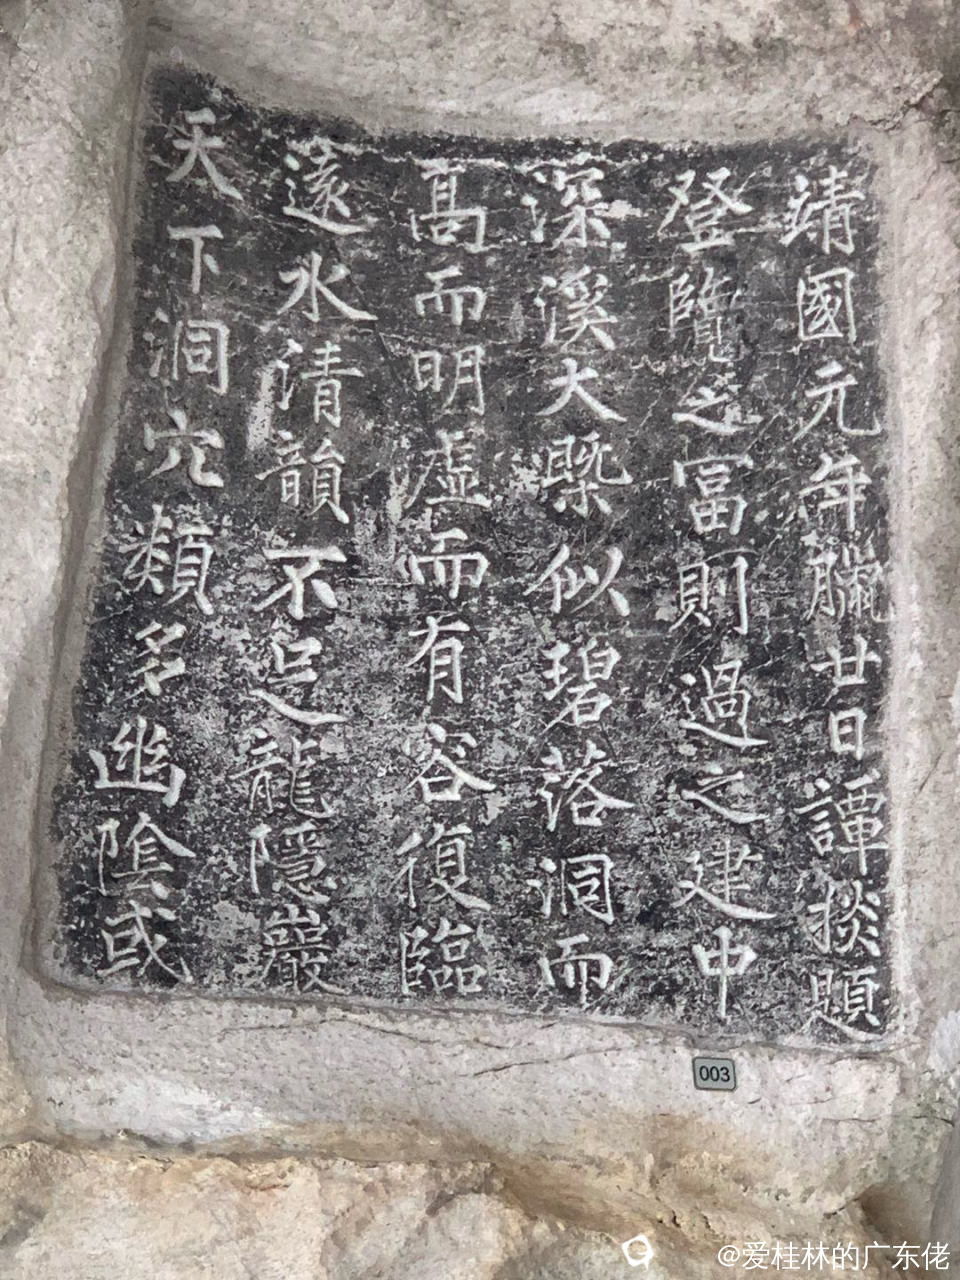 天下洞穴類多幽陰或
遠水清韻不足龍隱巖
髙而明虛而有容復臨
深溪大槩似碧落洞而
登覽之富則過之建中
靖國元年臘廿日譚掞題
003
@爱桂林的广东佬